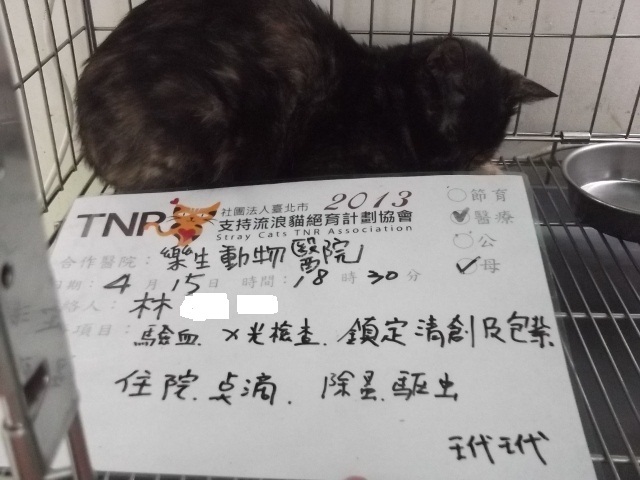 TNR 社團法人臺北市 2013
支持流浪貓絕育計劃協會
Stray Cats TNR Association
節育
醫療
公
母
合作醫院：樂生動物醫院
期：4月15日 時間：18時30分
絡人：林
項目：驗血、X光檢查、鎮定清創及包紮
住院、点滴、除蚤、驅虫
玳玳